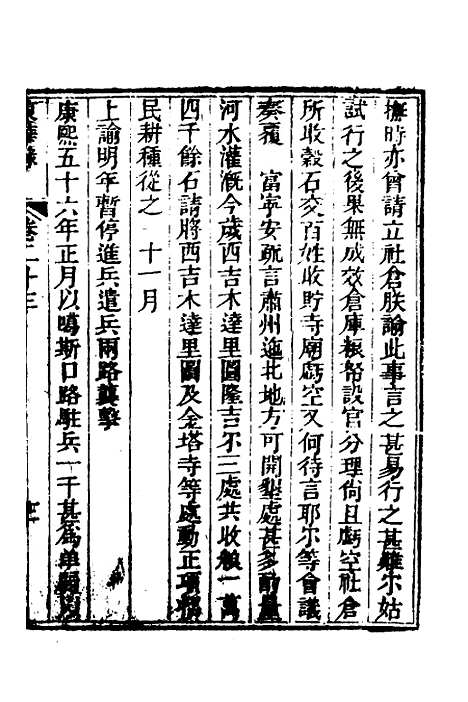 撫時亦曾請立社倉朕諭此事言之甚易行之甚難尔姑
試行之後果無成效倉庫粮帑設官分理尙且虧空社倉
所收穀石交百姓收貯寺廟虧空又何待言耶尔等會議
奏覆　富寧安疏言肅州迤北地方可開墾處甚多酌量
河水灌漑今歲西吉木達里圖隆吉尔三處共收粮一萬
四千餘石請將西吉木達里圖及金塔寺等處動正項
民耕種從之　十一月
上諭明年暫停進兵遣兵兩路襲擊
康熙五十六年正月以噶斯口路駐兵一千甚爲單弱
東華錄　卷二十三